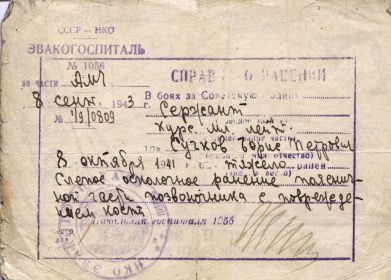 СССР — НКО
ЭВАКОГОСПИТАЛЬ
№ 1056
по части АМЧ
8 сент. 1943 г.
№ 1/9/0809
СПРАВКА О РАНЕНИИ
В боях за Советскую Родину
Сержант
курс. мл. лейт.
Сучков Борис Петрович
8 октября 1941 тяжело ранен
Слепое осколочное ранение пояснич-
ной части позвоночника с поврежде-
нием кости
Начальник госпиталя 1056